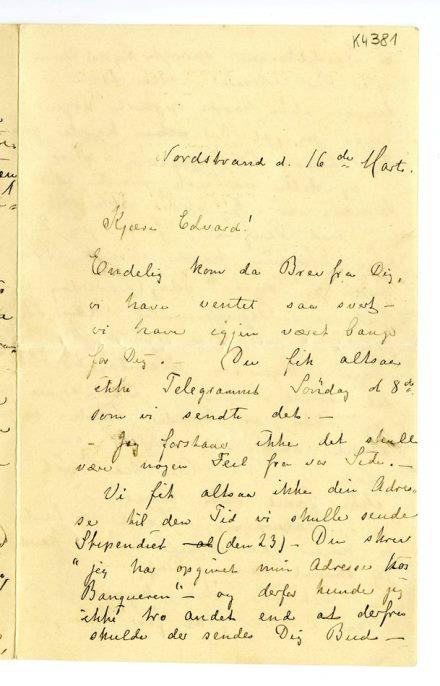 K4381
Nordstrand d. 16 de Marts.
Kjære Edvard!
Endelig kom da Brev fra Dig,
vi have ventet saa svært –
vi have igjen været bange
for Dig. – (Du fik altsaa
ikke Telegrammet Søndag d 8de
som vi sendte det. –
– Jeg forstaar ikke det skulle
være nogen Feil fra vor Side. –
Vi fik altsaa ikke din Adres-
se til den Tid vi skulle sende
Stipendiet (den 23) – Du skrev
"jeg har opgivet min Adresse hos
Banqueren" – og derfor kunde jeg
ikke tro andet end at derfra
skulde der sendes Dig Bud –